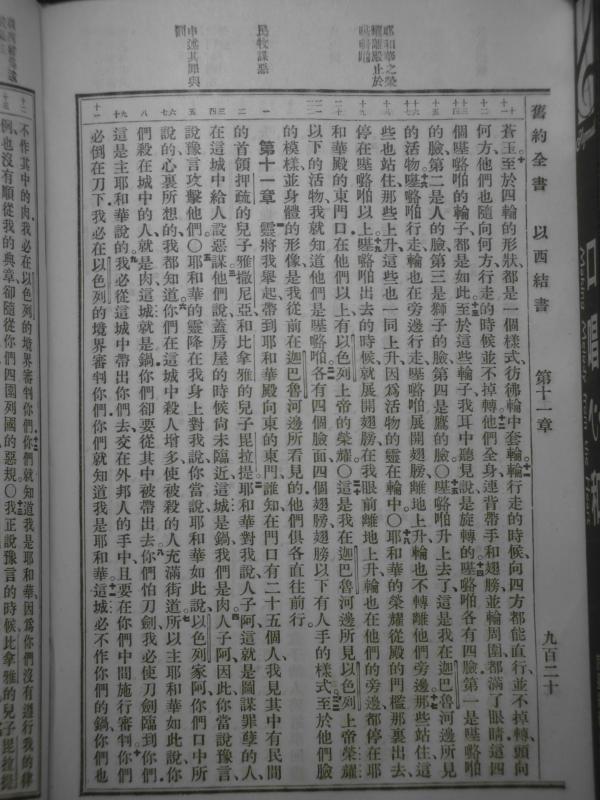 舊約全書 以西結書 第十一章 九百二十
蒼玉至於四輪的形狀都是一個樣式彷彿輪中套輪輪行走的時候向四方都能直行並不掉轉頭向
何方他們也隨向何方行走的時候並不掉轉他們全身連背帶手和翅膀並輪周圍都滿了眼睛這四
個𠼻咯咱的輪子都是如此至於這些輪子我耳中聽見說是旋轉的𠼻咯咱各有四臉第一是𠼻咯咱
的臉第二是人的臉第三是獅子的臉第四是鷹的臉〇𠼻咯咱升上去了這是我在迦巴魯河邊所見
的活物𠼻咯咱行走輪也在旁邊行走𠼻咯咱展開翅膀離地上升輪也不轉離他們旁邊那些站住這
些也站住那些上升這些也一同上升因爲活物的靈在輪中〇耶和華的榮耀從殿的門檻那裏出去
停在𠼻咯咱以上𠼻咯咱出去的時候就展開翅膀在我眼前離地上升輪也在他們的旁邊都停在耶
和華殿的東門口在他們以上有以色列上帝的榮耀〇這是我在迦巴魯河邊所見以色列上帝榮耀
以下的活物我就知道他們是𠼻咯咱各有四個臉面四個翅膀翅膀以下有人手的樣式至於他們臉
的模樣並身體的形像是我從前在迦巴魯河邊所看見的他們俱各直往前行
第十一章 靈將我舉起帶到耶和華殿向東的東門誰知在門口有二十五個人我見其中有民間
的首領押疏的兒子雅撒尼亞和比拿雅的兒子毘拉提耶和華對我說人子阿這就是圖謀罪孽的人
在這城中給人設惡謀他們說蓋房屋的時候尚未臨近這城是鍋我們是肉人子阿因此你當說豫言
說豫言攻擊他們〇耶和華的靈降在我身上對我說你當說耶和華如此說以色列家阿你們口中所
說的心裏所想的我都知道你們在這城中殺人增多使被殺的人充滿街道所以主耶和華如此說你
們殺在城中的人就是肉這城就是鍋你們卻要從其中被帶出去你們怕刀劍我必使刀劍臨到你們
這是主耶和華說的我必從這城中帶出你們去交在外邦人的手中且要在你們中間施行審判你們
必倒在刀下我必在以色列的境界審判你們你們就知道我是耶和華這城必不作你們的鍋你們也
不作其中的肉我必在以色列的境界審判你們你們就知道我是耶和華因爲你們沒有遵行我的律
例也沒有順從我的典章卻隨從你們四圍列國的惡規〇我正說豫言的時候比拿雅的兒子毘拉提
民牧謀惡
申述其罪與
口唱心和